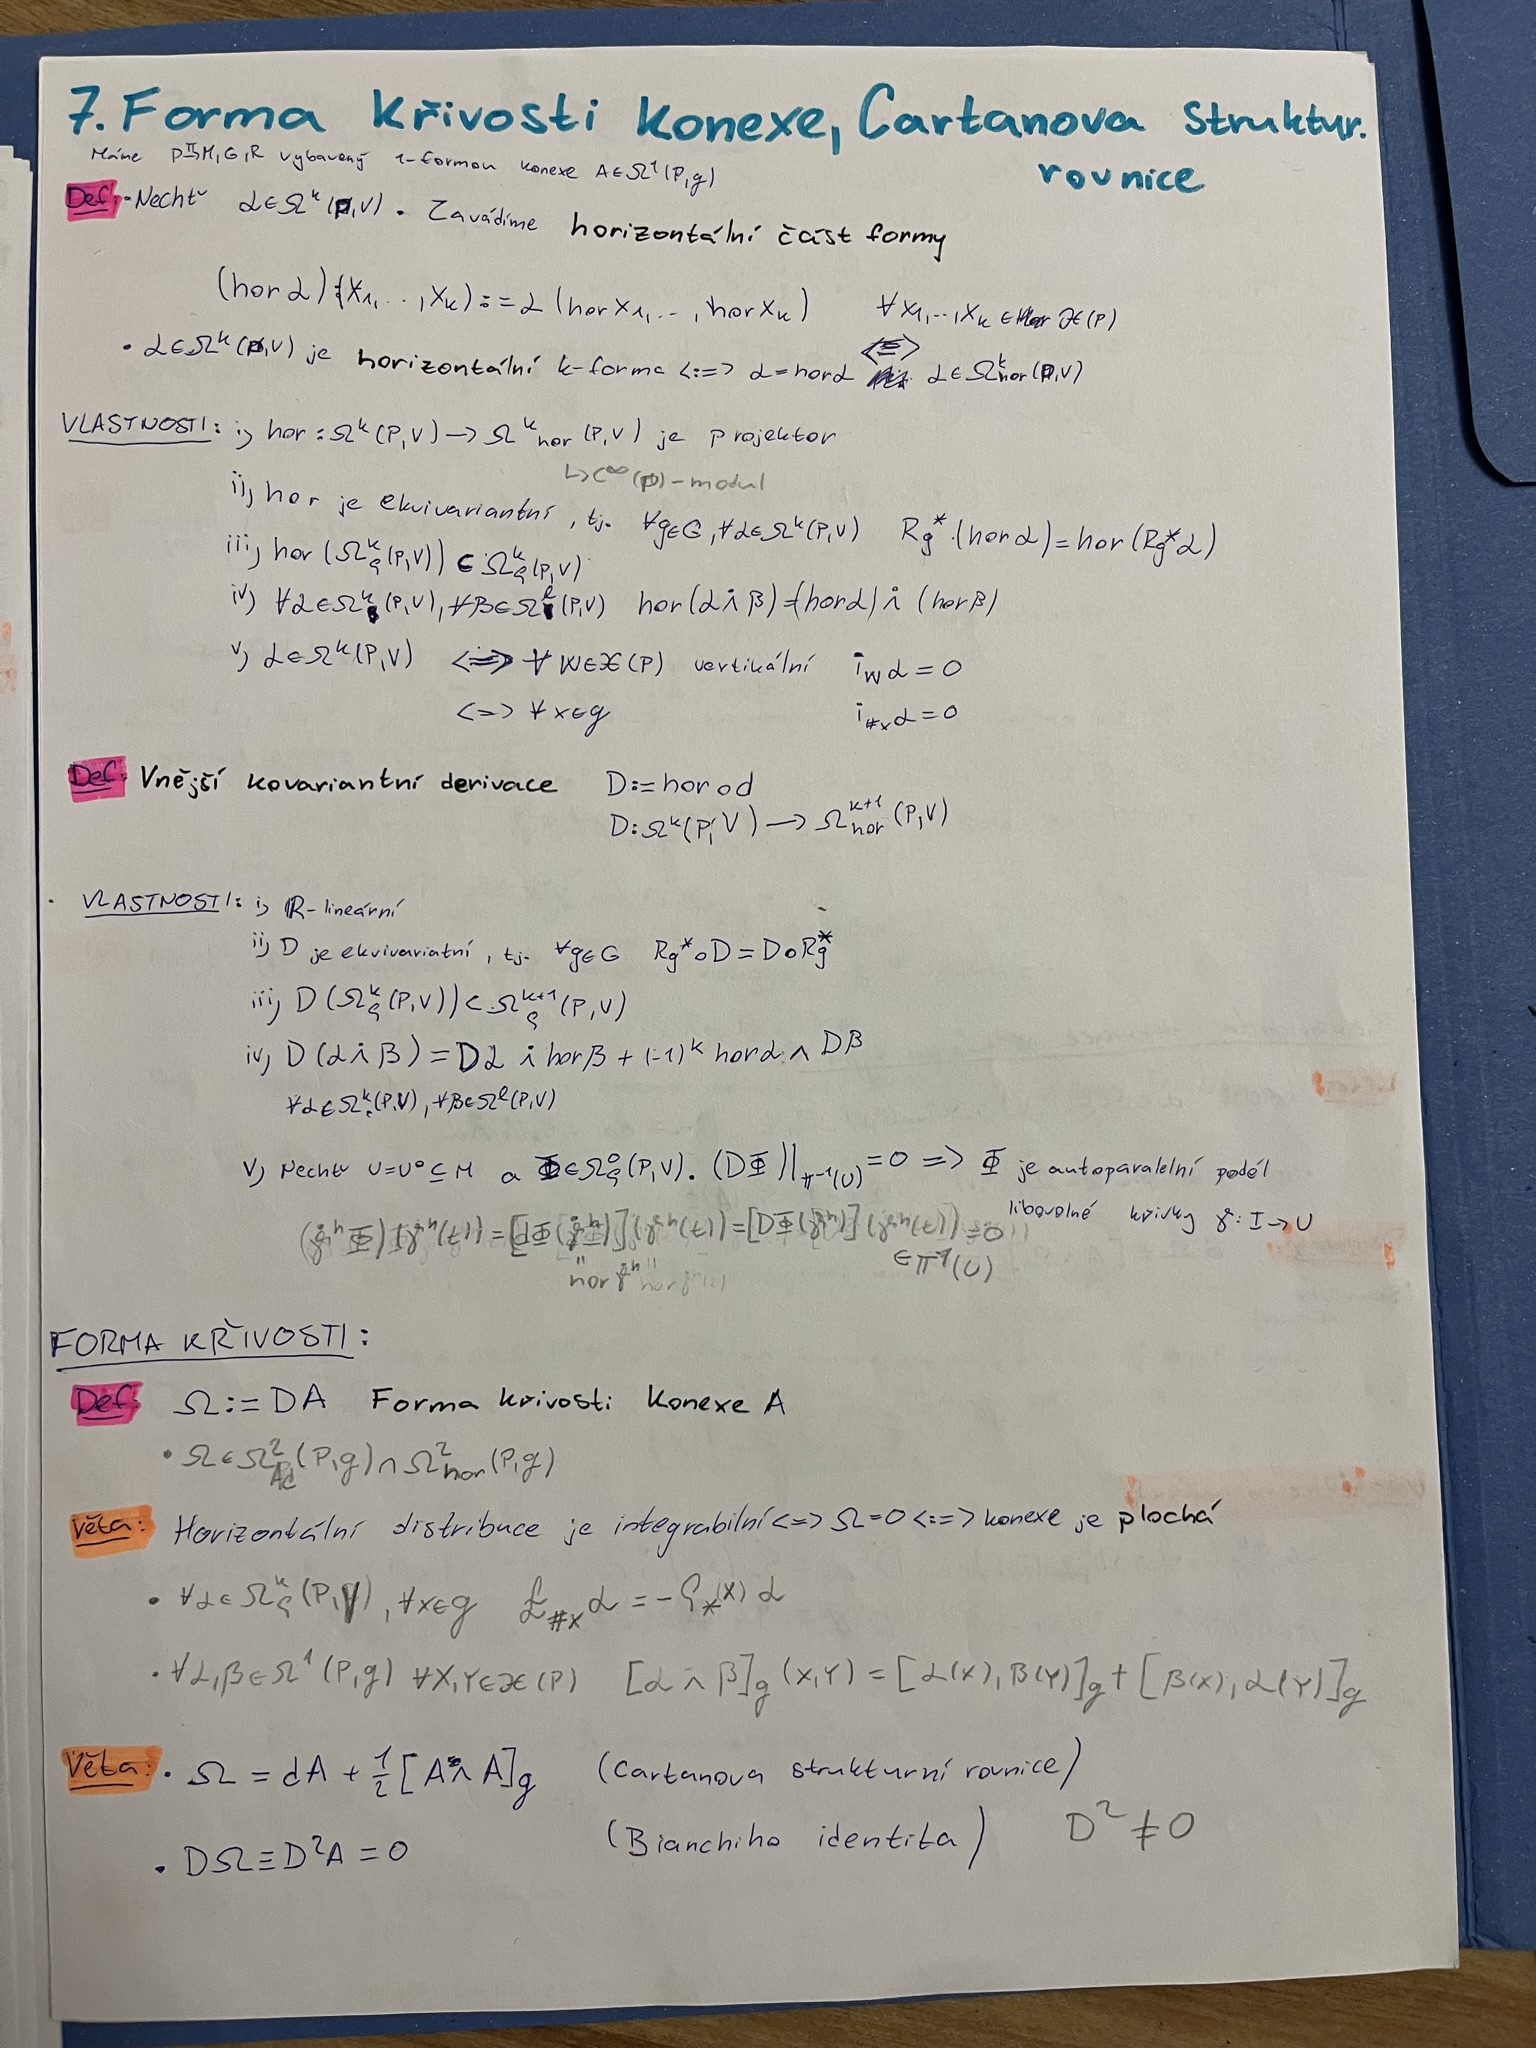 7. Forma křivosti konexe, Cartanova struktur.
rovnice
Máme P→M, G, R vybavený 1-formou konexe A∈Ω¹(P,g)
Def: • Nechť α∈Ωᵏ(P,V). Zavádíme horizontální část formy
(hor α)(X₁,...,Xₖ) := α(hor X₁,..., hor Xₖ) ∀X₁,...,Xₖ ∈ 𝔛(P)
• α∈Ωᵏ(P,V) je horizontální k-forma <=> α = hor α <=> α∈Ωᵏ_hor(P,V)
VLASTNOSTI: i) hor : Ωᵏ(P,V) → Ωᵏ_hor(P,V) je projektor
↳ C^∞(P)-modul
ii) hor je ekvivariantní, tj. ∀g∈G, ∀α∈Ωᵏ(P,V) Rg*(hor α) = hor(Rg*α)
iii) hor(Ωᵏ_ρ(P,V)) ⊂ Ωᵏ_ρ(P,V)
iv) ∀α∈Ωᵏ(P,V), ∀β∈Ω^ℓ(P,V) hor(α ∧̇ β) = (hor α) ∧̇ (hor β)
v) α∈Ωᵏ(P,V) <=> ∀W∈𝔛(P) vertikální i_W α = 0
<=> ∀x∈g i_{#x} α = 0
Def: Vnější kovariantní derivace D := hor∘d
D: Ωᵏ(P,V) → Ω^{k+1}_hor(P,V)
• VLASTNOSTI: i) R-lineární
ii) D je ekvivariatní, tj. ∀g∈G Rg*∘D = D∘Rg*
iii) D(Ωᵏ_ρ(P,V)) ⊂ Ω^{k+1}_ρ(P,V)
iv) D(α ∧̇ β) = Dα ∧̇ hor β + (-1)ᵏ hor α ∧ Dβ
∀α∈Ωᵏ(P,V), ∀β∈Ω^ℓ(P,V)
v) Nechť U=U°⊆M a Φ∈Ω⁰_ρ(P,V). (DΦ)|_{π⁻¹(U)} = 0 => Φ je autoparalelní podél
libovolné křivky γ: I→U
(γ̇ʰ Φ)(γʰ(t)) = [dΦ(γ̇ʰ)](γʰ(t)) = [DΦ(γ̇ʰ)](γʰ(t)) = 0
hor γ̇ʰ ∈π⁻¹(U)
FORMA KŘIVOSTI:
Def: Ω := DA Forma křivosti konexe A
• Ω∈Ω²_Ad(P,g) ∩ Ω²_hor(P,g)
Věta: Horizontální distribuce je integrabilní <=> Ω=0 <:=> konexe je plochá
• ∀α∈Ωᵏ_ρ(P,V), ∀x∈g £_{#x} α = -ρ_*(x) α
• ∀α,β∈Ω¹(P,g) ∀X,Y∈𝔛(P) [α ∧ β]_g (X,Y) = [α(X), β(Y)]_g + [β(X), α(Y)]_g
Věta: • Ω = dA + ½[A ∧ A]_g (Cartanova strukturní rovnice)
• DΩ ≡ D²A = 0 (Bianchiho identita) D² ≠ 0